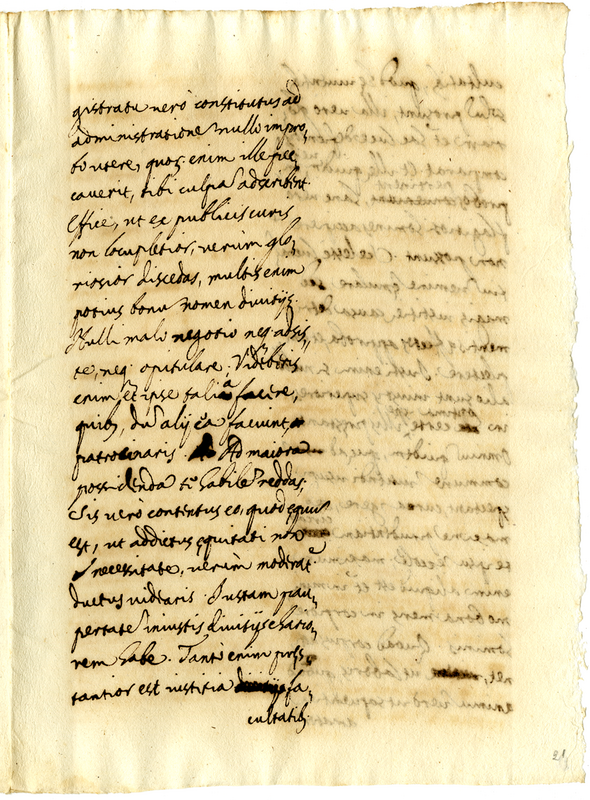 gistratu verò constitutus ad
administratione nulli impro,
bo utere, quoq; enim ille pec,
caverit, tibi culpa adscribent.
Effice, ut ex publicis curis
non locupletior, verùm glo,
riosior discedas, multis enim
potius bonu nomen divitijs.
Nulli malo negotio neq. adsis,
te, neq. opitulare; Videberis
enim et ipse talia facere,
quib, du alijs ea faciunt
patrocinaris. Ad maiora
possidenda te habile reddas;
Sis vero contentus eo, quod equu
est, ut addictus equitati non
necessitate, verùm moderat.
ductus videaris. Iustam pau,
pertate iniustis divitijs chario,
rem habe. Tanto enim præs,
tantior est iustitia fa,
cultatib,
21